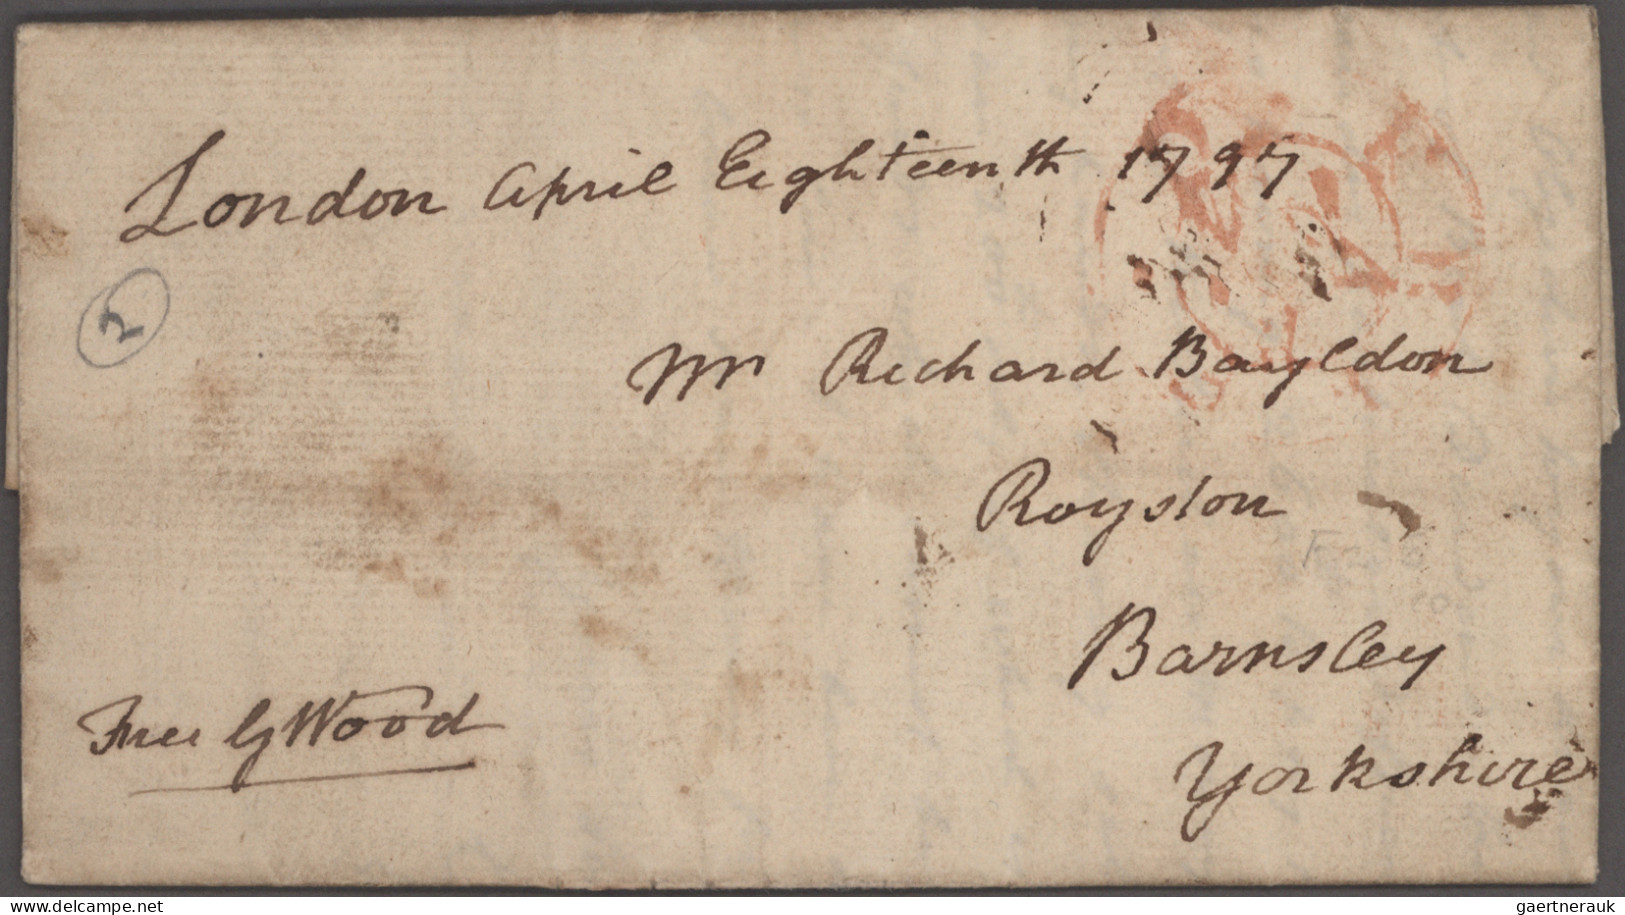 London April Eighteenth 1797
2
Mr Richard Bayldon
Royston
Barnsley
Yorkshire
Free G Wood
delcampe.net
gaertnerauk